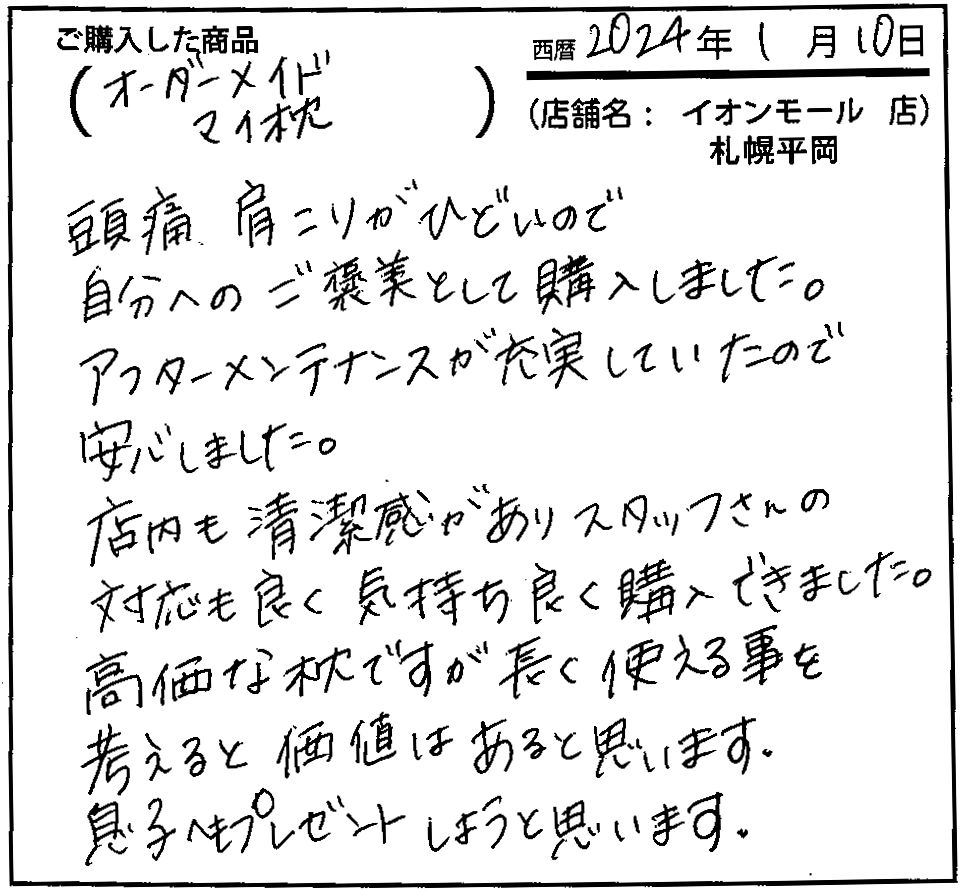 ご購入した商品
(オーダーメイド
マイ枕)
西暦 2024年 1 月 10日
(店舗名: イオンモール 店)
札幌平岡
頭痛、肩こりがひどいので
自分へのご褒美として購入しました。
アフターメンテナンスが充実していたので
安心しました。
店内も清潔感がありスタッフさんの
対応も良く気持ち良く購入できました。
高価な枕ですが長く使える事を
考えると価値はあると思います。
息子へもプレゼントしようと思います。